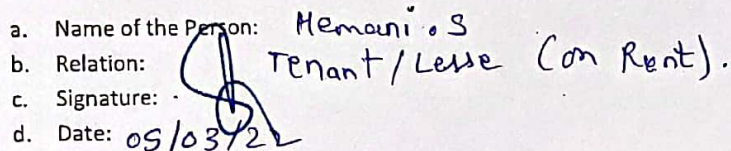 a. Name of the Person: Hemani . S
b. Relation: Tenant / Lesse (on Rent).
c. Signature:
d. Date: 05/03/22